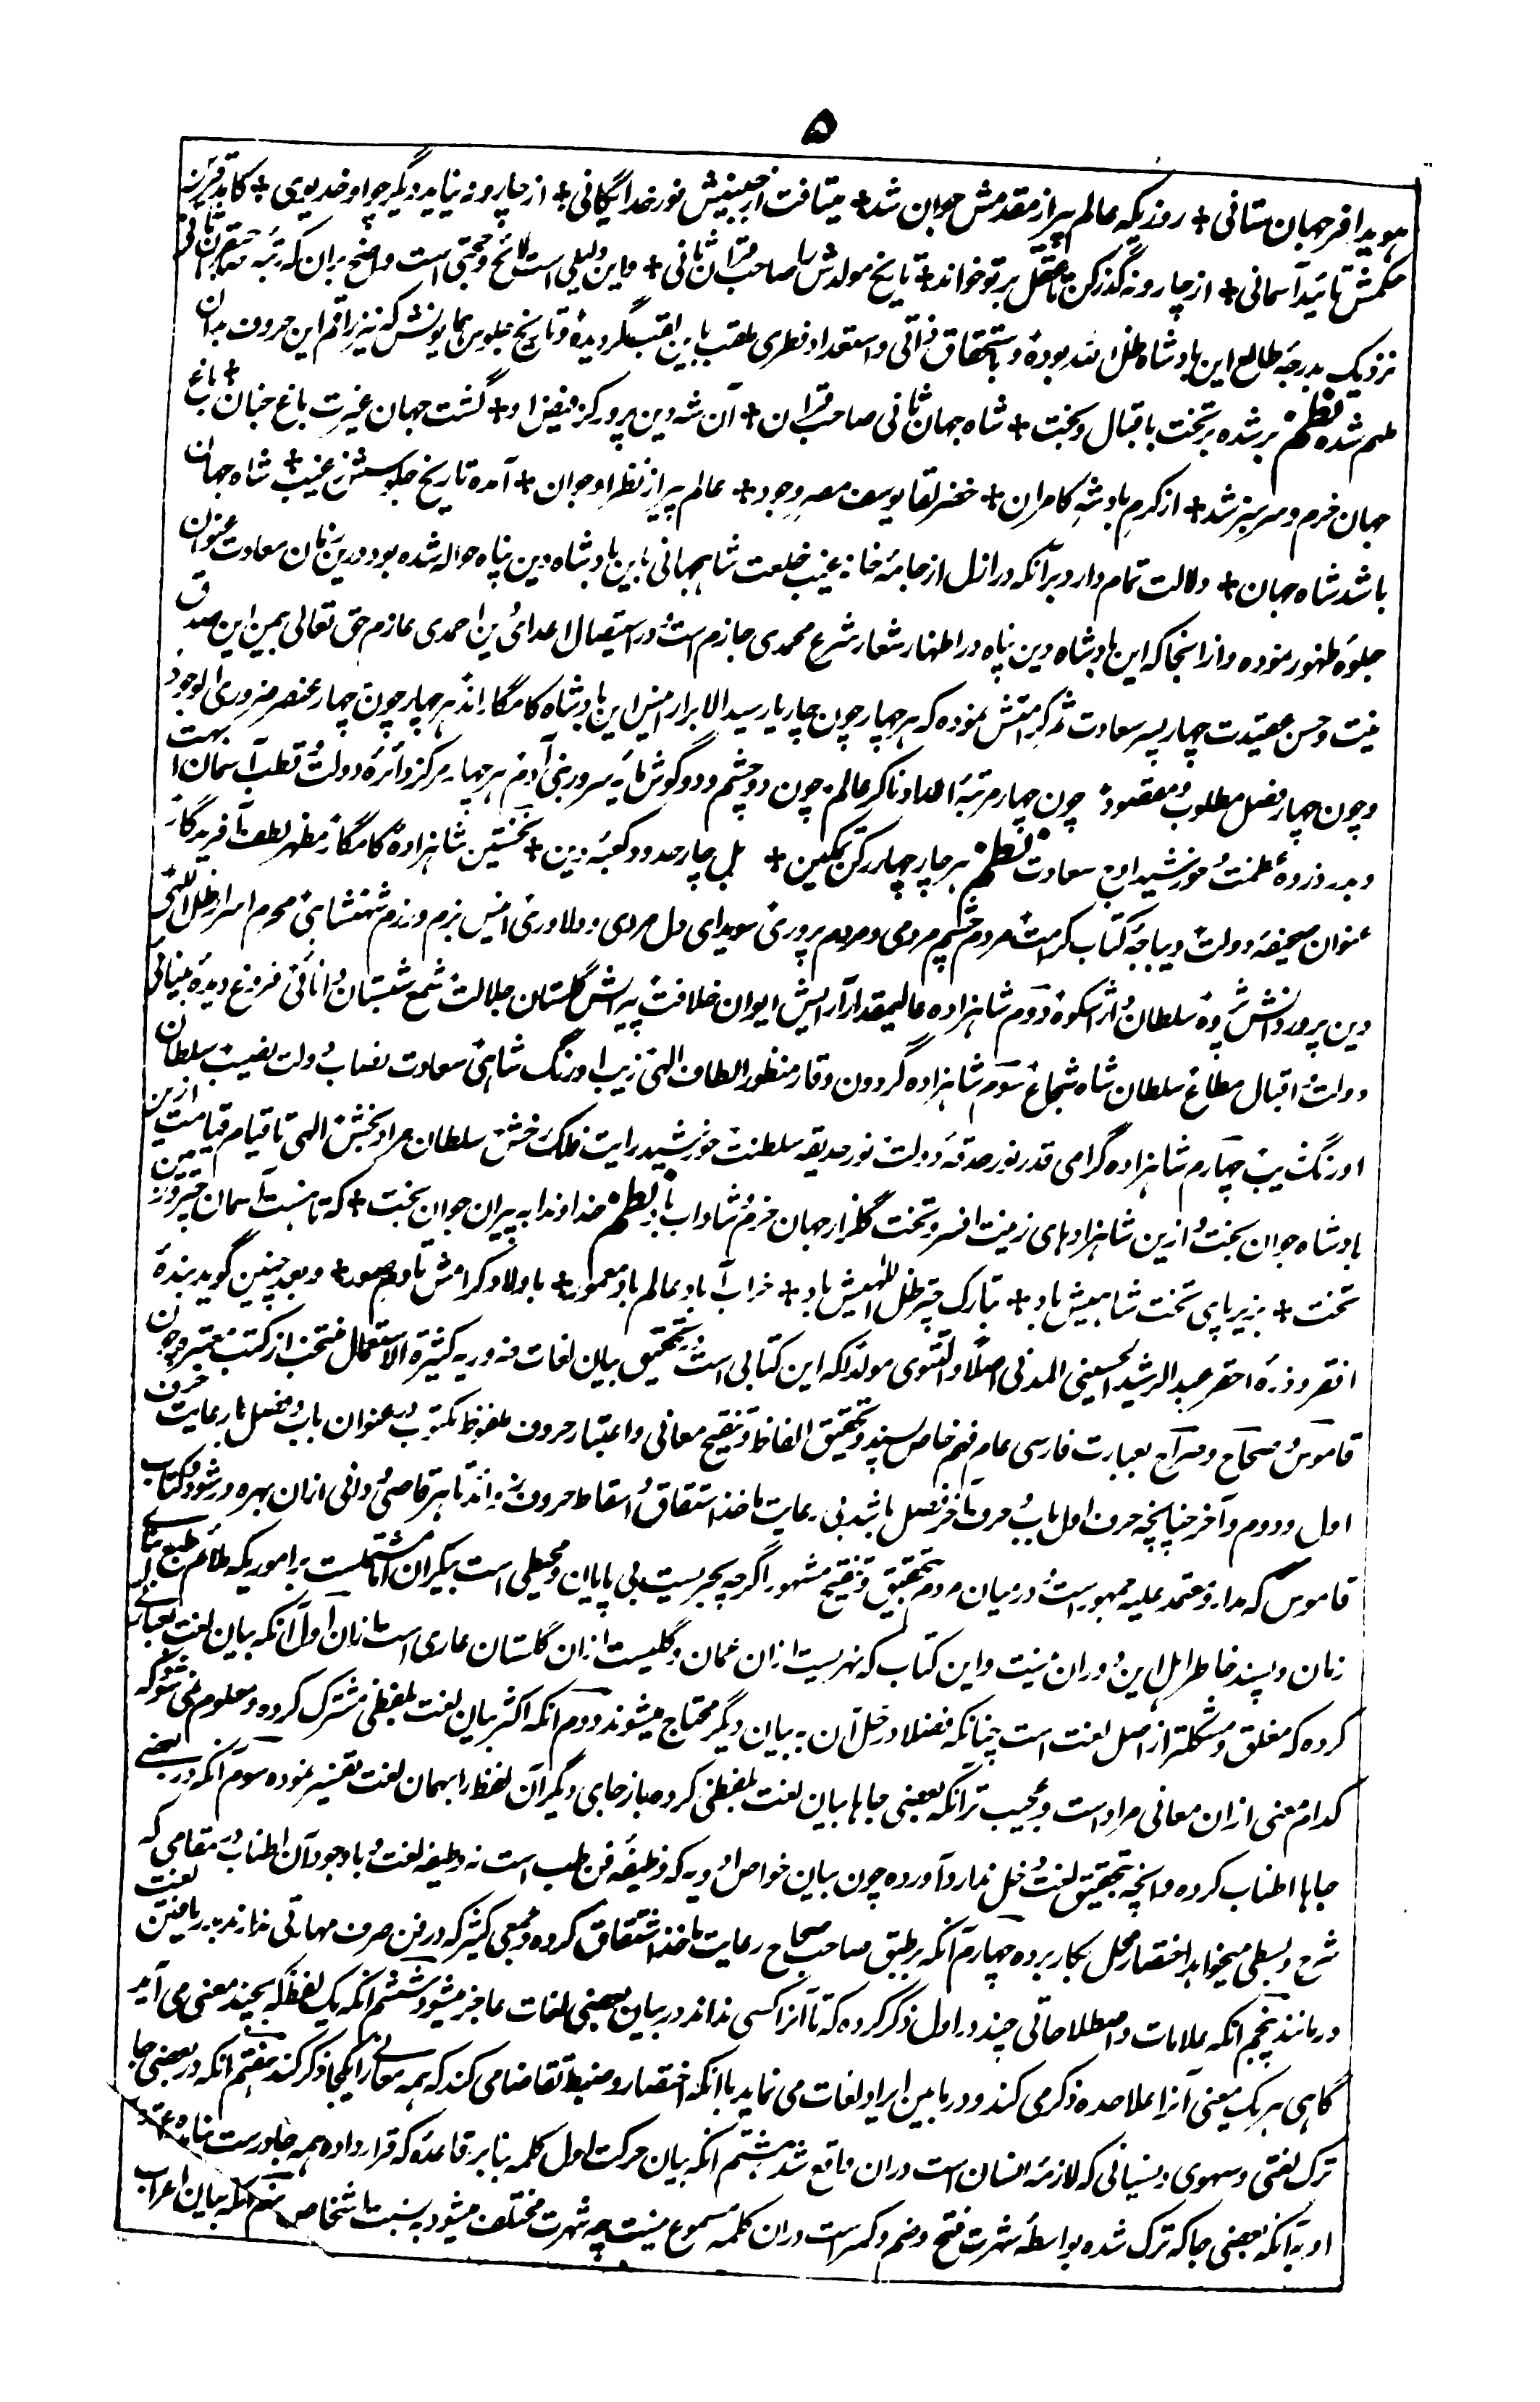 ۵
هویدا فر جهان ستانی + روزیکه عالم پیر از مقدمش جوان شد + میتافت از جبینش نور خدایگانی + از چار و نه نیاید دیگر چو او خدیوی +
حکمش تائید آسمانی + از چار و نه گذر کن تا عقل بر تو خواند + تاریخ مولدش را صاحبقران ثانی + و این دلیلی است لائح و حجتی است واضح بران که رتبه صاحبقرانی
نزدیک بدرجهٔ طالع این بادشاه ظل الله بوده و باستحقاق ذاتی و استعداد فطری ملقب باین لقب گردیده و تاریخ جلوس همایونش که نیز راقم این حروف بدان
ملهم شده نظم بر شده بر تخت باقبال و بخت + شاه جهان ثانی صاحب قران + آن شه دین پرور کز فیض او + گشت جهان غیرت باغ جنان + باغ
جهان خرم و سرسبز شد + از کرم بادشه کامران + خضر لقا یوسف مصر وجود + عالم پیر از نظر او جوان + آمده تاریخ جلوسش ز غیب + شاه جهان
باشد شاه جهان + دلالت تمام دارد برآنکه در ازل از جامه خانهٔ غیب خلعت شاهجهانی باین بادشاه دین پناه حواله شده بود درین زمان سعادت عنوان
جلوهٔ ظهور نموده و از انجا که این بادشاه دین پناه در اظهار شعار شرع محمدی جازم است و در استیصال اعدای دین احمدی عازم حق تعالی بیمن این صدق
نیت و حسن عقیدت چهار پسر سعادت ثمر کرامتش نموده که هر چهار چون چار یار سید الابرار انیس این بادشاه کامگار اند هر چهار چون چهار عنصر ضروری الوجود
و چون چهار فصل مطلوب و مقصود چون چهار مرتبهٔ اعداد ناگزیر عالم چون دو چشم و دو گوش مایهٔ سروری بنی آدم هر چهار مرکز دائرهٔ دولت و قطب آسمان ابهت
و بدر ذروهٔ عظمت و خورشید اوج سعادت نظم هر چار چهار رکن تمکین + بل چار حدود کعبهٔ دین + نخستین شاهزادهٔ کامگار مظهر لطف آفریدگار
عنوان صحیفهٔ دولت دیباجهٔ کتاب کرامت مردم چشم مردمی و مردم پروری سویدای دل مردی و دلاوری انیس بزم و رزم شهنشاهی محرم اسرار ظل اللهی
دین پرور دانش پژوه سلطان دارا شکوه دوم شاهزاده عالیمقدار آرایش ایوان خلافت پیرایش گلستان جلالت شمع شبستان دانائی فروغ دیدهٔ بینائی
دولت و اقبال مطاع سلطان شاه شجاع سوم شاهزاده گردون وقار منظور الطاف الهی زیب اورنگ شاهی سعادت نصاب دولت نصیب سلطان
اورنگ زیب چهارم شاهزاده گرامی قدر نور حدقهٔ دولت نور حدیقه سلطنت خورشید رایت فلک رخش سلطان مراد بخش الهی تا قیام قیامت ازین
بادشاه جوان بخت و ازین شاهزادهای زینت افسر و تخت گلزار جهان خرم و شاداب باد نظم خداوندا به پیران جوان بخت + که تا هست آسمان فیروزه
تخت + بزیر پای تخت شاهیش باد + تبارک چتر ظل اللهیش باد + خراب آباد عالم باد معمور + باولاد کرامش تا دم صور + و بعد چنین گوید بندهٔ کمترین
افقر و ذرهٔ احقر عبد الرشید الحسینی المدنی اصلا و التتوی مولدا که این کتابی است در تحقیق بیان لغات ضروریه کثیرة الاستعمال منتخب از کتب معتبره چون
قاموس و صحاح و صراح بعبارت فارسی عام فهم خاص پسند و تحقیق الفاظ و تنقیح معانی و اعتبار حروف ملفوظ مکتوب در عنوان باب و فصل با رعایت حرف
اول و دوم و آخر چنانچه حرف اول باب و حرف آخر فصل باشد بی رعایت ماخذ اشتقاق و اسقاط حروف زوائد تا هر قاصی و دانی ازان بهره ور شود و کتاب
قاموس که مدار و معتمد علیه جمهور است و درمیان مردم بتحقیق و تنقیح مشهور اگرچه بحریست بی پایان و محیطی است بیکران اما مشتملست بر اموریکه ملائم طبع ابنای
زمان و پسند خاطر اهل این دوران نیست و این کتاب که نهریست ازان عمان و گلیست ازان گلستان عاری است ازان اول آنکه بیان لغت بعبارتی
کرده که مغلق و مشکلتر از اصل لغت است چنانکه فضلا در حل آن به بیان دیگر محتاج میشوند دوم آنکه اکثر بیان لغت بلفظی مشترک کرده و معلوم نمی شود که
کدام معنی ازان معانی مراد است و عجیب تر آنکه بعضی جاها بیان لغت بلفظی کرده باز جای دیگر آن لفظ را بهمان لغت تفسیر نموده سوم آنکه در بعضی
جاها اطناب کرده و انچه بتحقیق لغت دخل ندارد آورده چون بیان خواص ادویه که وظیفهٔ فن طب است نه وظیفه لغت و باوجود آن اطناب در مقامی که
شرح و بسطی میخواهد اختصار مخل بکار برده چهارم آنکه بر طبق صاحب صحاح رعایت ماخذ اشتقاق کرده و جمعی کثیر که در فن صرف مهارتی ندارند در یافتن لغت
در مانند پنجم آنکه علامات و اصطلاحاتی چند در اول ذکر کرده که تا آنرا کسی نداند در بیان بعضی لغات عاجز میشود ششم آنکه یک لفظ که بچند معنی می آید
گاهی هر یک معنی آنرا علاحده ذکر می کند و در مابین ایراد لغات می نماید با آنکه اختصار و ضبط تقاضا می کند که همه معانی را یکجا ذکر کند هفتم آنکه در بعضی جا
ترک لغتی و سهوی و نسیانی که لازمهٔ انسان است دران واقع شد هشتم آنکه بیان حرکت اول کلمه بنابر قاعدهٔ که قرار داده همه جا درست
او به آنکه بعضی جا که ترک شده بواسطهٔ شهرت فتح و ضم و کسر است دران کلمه مسموع نیست چه شهرت مختلف میشود به نسبت اشخاص نهم آنکه بیان اعراب